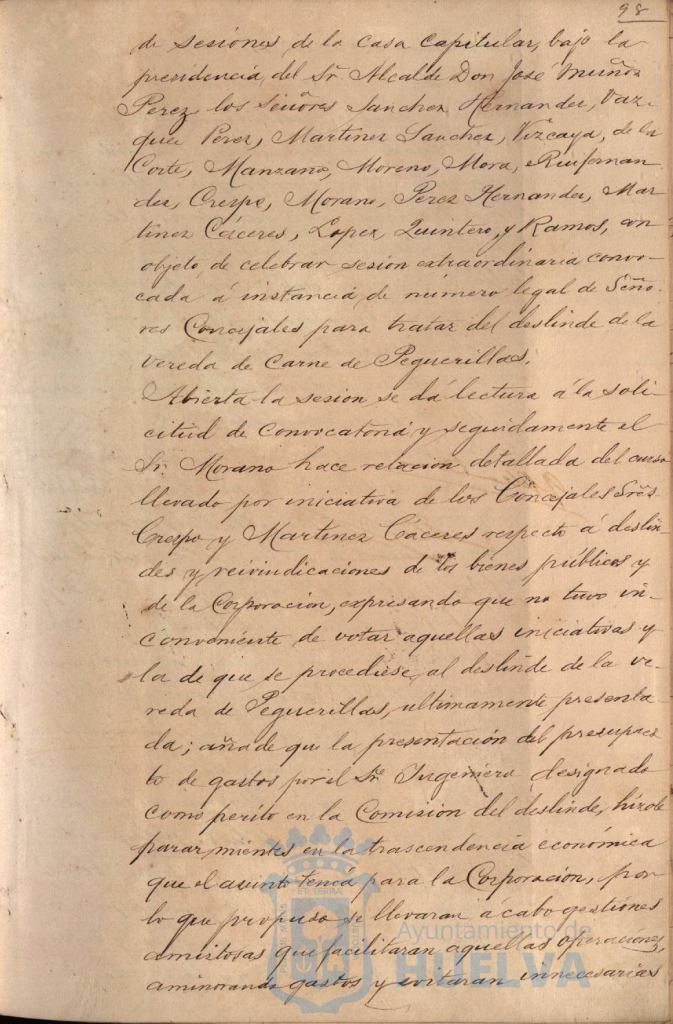 98
de sesiones de la casa capitular, bajo la
presidencia del Sr. Alcalde Don José Muñoz
Perez los Señores Sanchez Hernandez, Vaz-
quez Perez, Martinez Sanchez, Vizcaya, de la
Corte, Manzano, Moreno, Mora, Ruifernan-
dez, Crespo, Morano, Perez Hernandez, Mar-
tinez Cáceres, Lopez, Quintero, y Ramos, con
objeto, de celebrar sesion extraordinaria convo-
cada á instancia de número legal de Seño-
res Concejales para tratar del deslinde de la
vereda de carne de Peguerillas.
Abierta la sesion se dá lectura á la soli-
citud de convocatoria y seguidamente el
Sr. Morano hace relacion detallada del curso
llevado por iniciativa de los Concejales Sres.
Crespo y Martinez Cáceres respecto á deslin-
des y reivindicaciones de los bienes públicos y
de la Corporacion, expresando que no tuvo in-
conveniente de votar aquellas iniciativas y
la de que se procediese al deslinde de la ve-
reda de Peguerillas, ultimamente presenta-
da; añade que la presentación del presupues-
to de gastos por el Sr. Ingeniero designado
como perito en la Comision del deslinde, hízole
parar mientes en la trascendencia económica
que el asunto tenia para la Corporacion, por
lo que propuso se llevaran á cabo gestiones
amistosas que facilitaran aquellas operaciones,
aminorando gastos y evitaran innecesarias
Ayuntamiento de
HUELVA